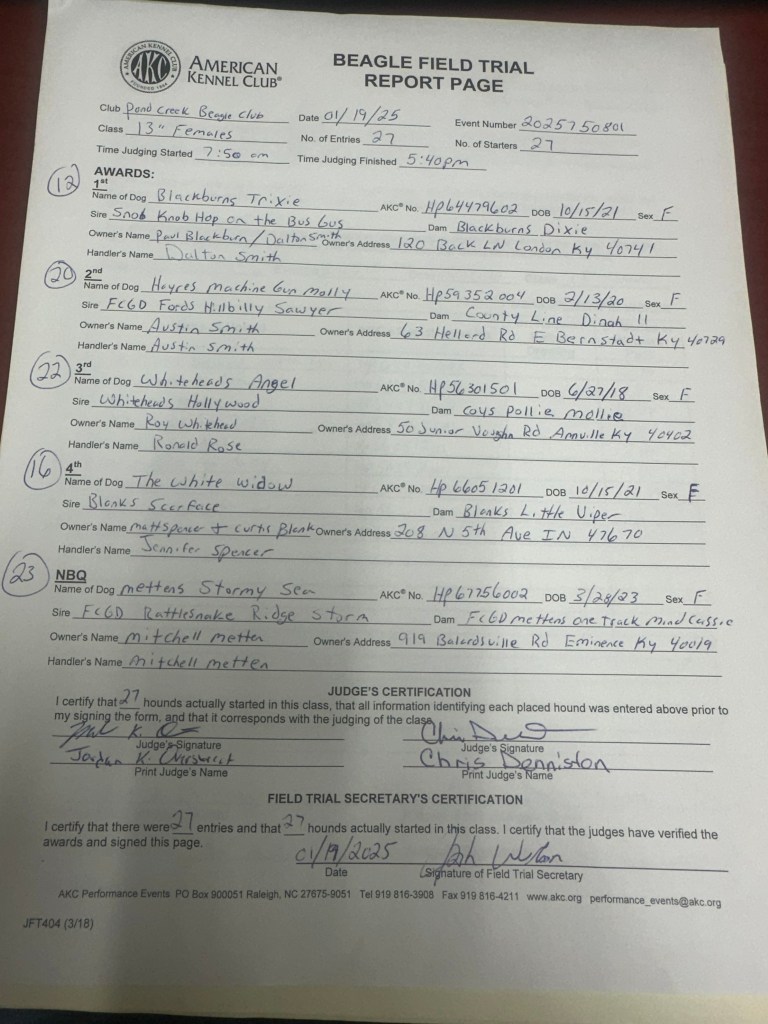 AMERICAN KENNEL CLUB
FOUNDED 1884
AKC
AMERICAN
KENNEL CLUB®
BEAGLE FIELD TRIAL
REPORT PAGE
Club Pond Creek Beagle Club Date 01/19/25 Event Number 2025750801
Class 13" Females No. of Entries 27 No. of Starters 27
Time Judging Started 7:50 am Time Judging Finished 5:40pm
AWARDS:
12 1st
Name of Dog Blackburns Trixie AKC® No. HP64479602 DOB 10/15/21 Sex F
Sire Snob Knob Hop on the Bus Gus Dam Blackburns Dixie
Owner's Name Paul Blackburn/Dalton Smith Owner's Address 120 Back LN London Ky 40741
Handler's Name Dalton Smith
20 2nd
Name of Dog Hayres machine Gun molly AKC® No. HP59352004 DOB 2/13/20 Sex F
Sire FCGD Fords Hillbilly Sawyer Dam County Line Dinah 11
Owner's Name Austin Smith Owner's Address 63 Hellard Rd E Bernstadt Ky 40729
Handler's Name Austin Smith
22 3rd
Name of Dog Whiteheads Angel AKC® No. HP56301501 DOB 6/27/18 Sex F
Sire Whiteheads Hollywood Dam coys pollie mollie
Owner's Name Roy Whitehead Owner's Address 50 Junior Vaughn Rd Annville Ky 40402
Handler's Name Ronald Rose
16 4th
Name of Dog The white widow AKC® No. Hp66051201 DOB 10/15/21 Sex F
Sire Blanks Scarface Dam Blanks Little Viper
Owner's Name matt spencer + curtis Blank Owner's Address 208 N 5th Ave IN 47670
Handler's Name Jennifer Spencer
23 NBQ
Name of Dog mettens Stormy Sea AKC® No. HP67756002 DOB 3/28/23 Sex F
Sire FCGD Rattlesnake Ridge Storm Dam FCGD mettens one Track mind Cassie
Owner's Name mitchell metten Owner's Address 919 Balardsville Rd Eminence Ky 40019
Handler's Name mitchell metten
JUDGE'S CERTIFICATION
I certify that 27 hounds actually started in this class, that all information identifying each placed hound was entered above prior to
my signing the form, and that it corresponds with the judging of the class.
Judge's Signature Judge's Signature
Jordan K. Chris Denniston
Print Judge's Name Print Judge's Name
FIELD TRIAL SECRETARY'S CERTIFICATION
I certify that there were 27 entries and that 27 hounds actually started in this class. I certify that the judges have verified the
awards and signed this page.
01/19/2025
Date Signature of Field Trial Secretary
AKC Performance Events PO Box 900051 Raleigh, NC 27675-9051 Tel 919 816-3908 Fax 919 816-4211 www.akc.org performance_events@akc.org
JFT404 (3/18)